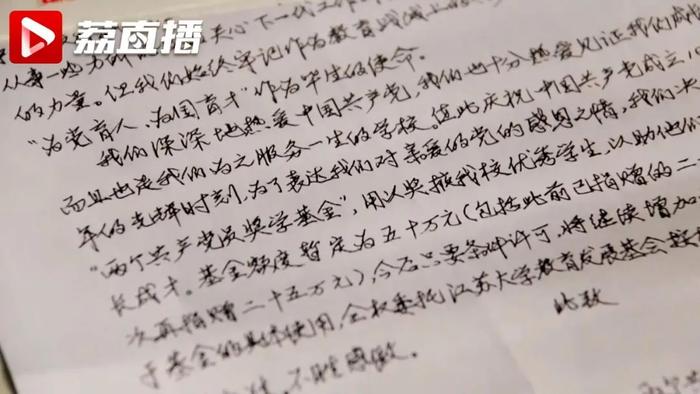 荔直播
关心下一代工作
的力量。但我们始终牢记作为教育战线上
“为党育人、为国育才”作为毕生的使命。
我们深深地热爱中国共产党，我们也十分热爱见证我们成
而且也是我们为之服务一生的学校。值此庆祝中国共产党成立
年的光辉时刻，为了表达我们对亲爱的党的感恩之情，我们决
“两个共产党员奖学基金”，用以奖掖我校优秀学生，以助他们
长成才。基金额度暂定为五十万元（包括此前已捐赠的二
次再捐赠二十五万元），今后只要条件许可，将继续增加
于基金的具体使用，全权委托江苏大学教育发展基金会
不胜感激。
此致